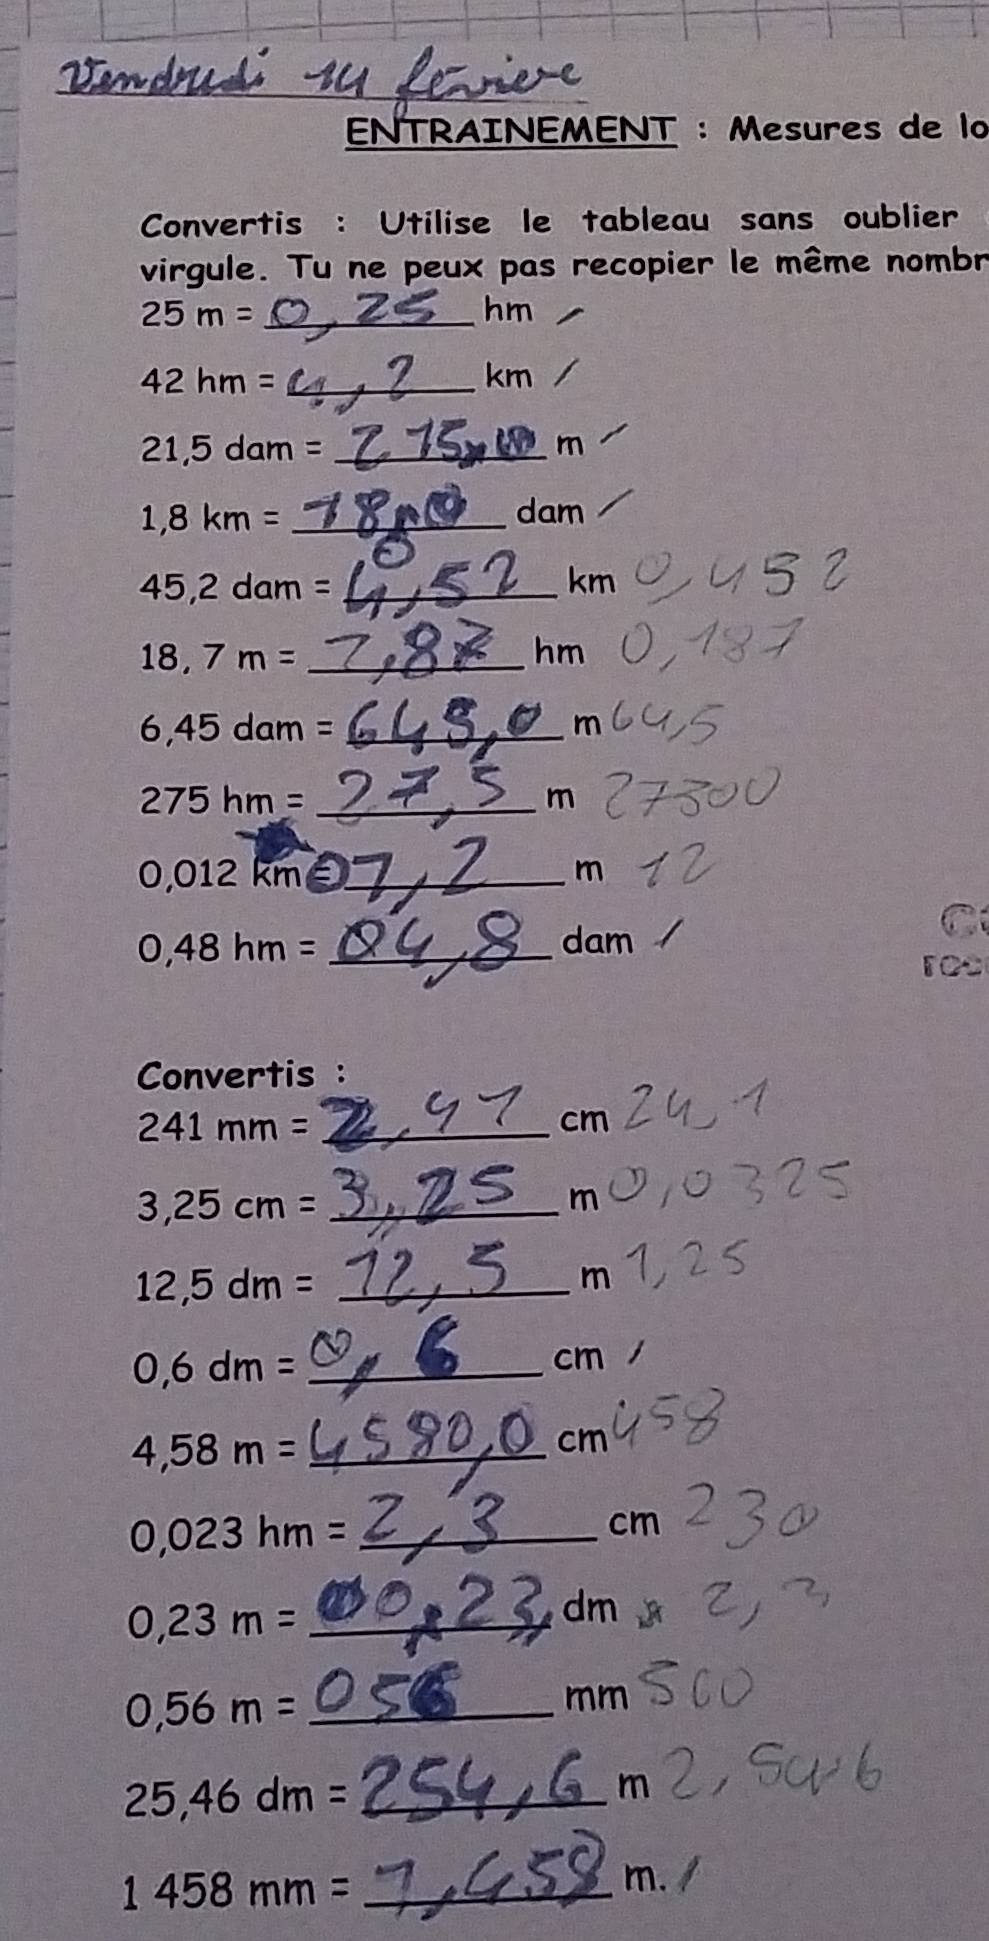 Vendredi 14 février
ENTRAINEMENT : Mesures de lo
Convertis : Utilise le tableau sans oublier
virgule. Tu ne peux pas recopier le même nombr
25 m = 0,25 hm /
42 hm = 4,2 km /
21,5 dam = 215 m /
1,8 km = 180 dam /
45,2 dam = 4,52 km 0,452
18,7 m = 1,87 hm 0,187
6,45 dam = 645,0 m 64,5
275 hm = 27,5 m 27500
0,012 km = 1,2 m 12
0,48 hm = 04,8 dam /
Convertis :
241 mm = 2,41 cm 24,1
3,25 cm = 3,25 m 0,0325
12,5 dm = 12,5 m 1,25
0,6 dm = 0,6 cm /
4,58 m = 4580,0 cm 458
0,023 hm = 2,3 cm 230
0,23 m = 00,23, dm 2,3
0,56 m = 056 mm 560
25,46 dm = 254,6 m 2,546
1 458 mm = 1,458 m. /